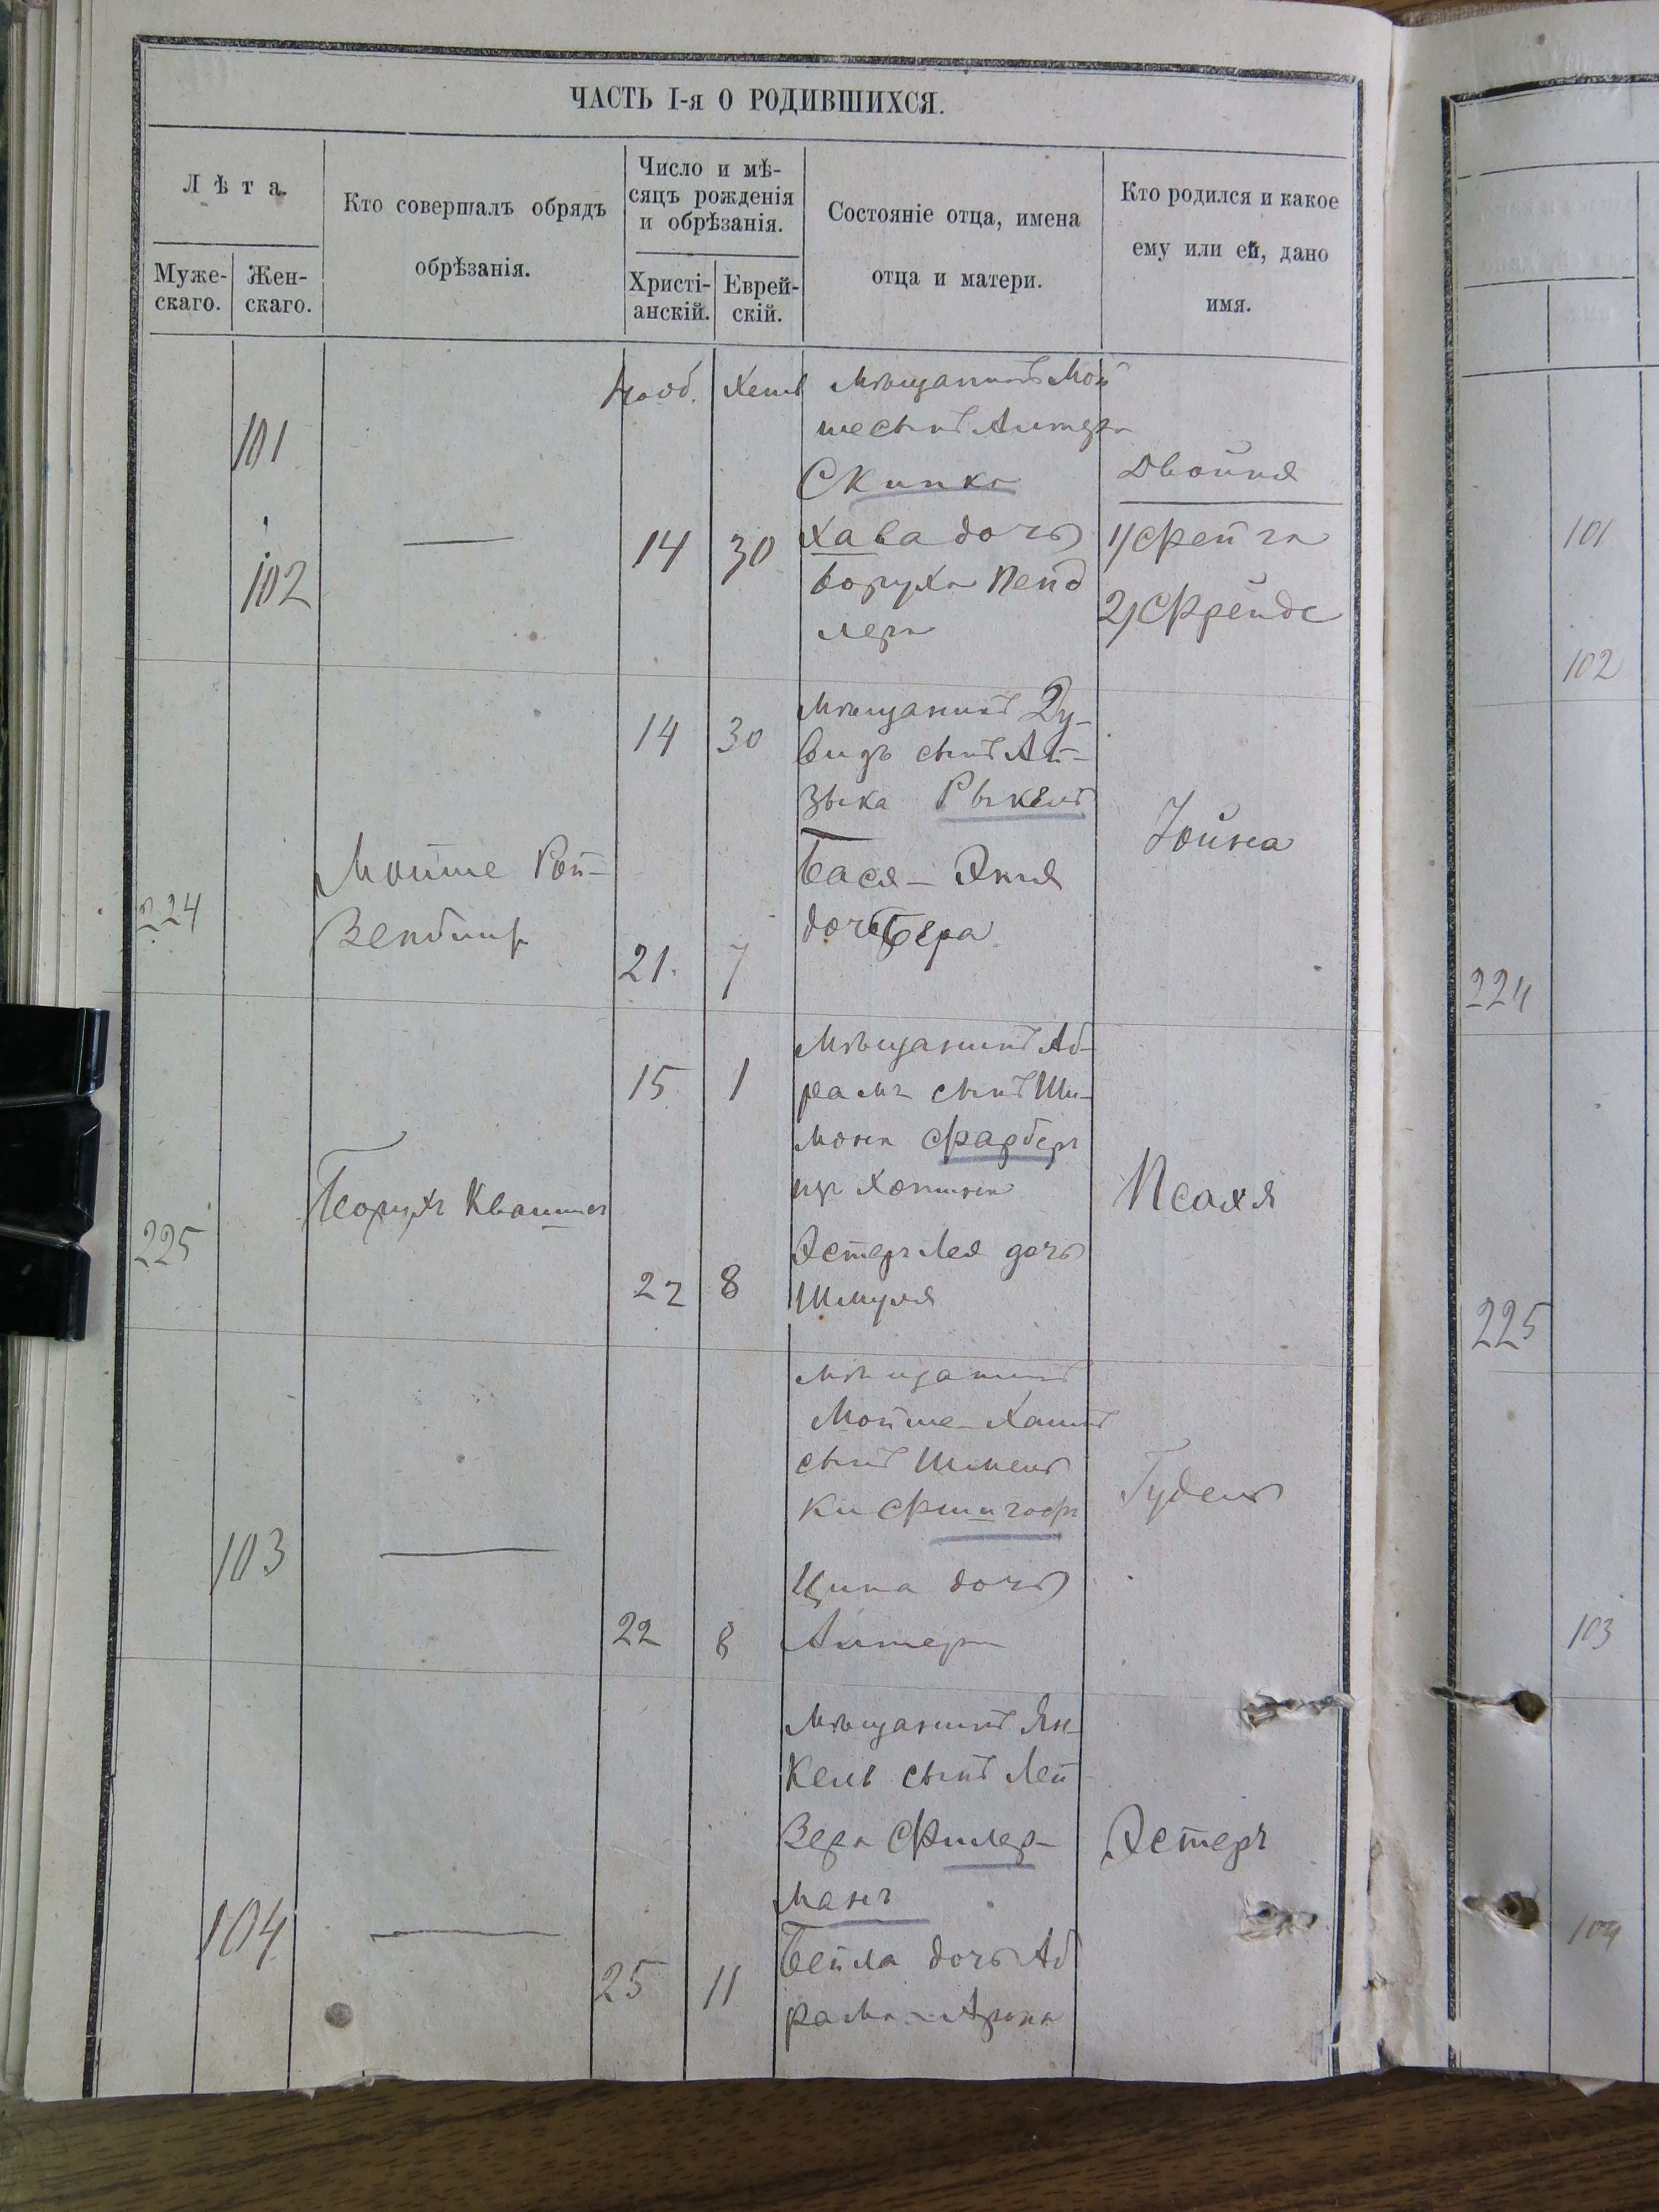 ЧАСТЬ I-я О РОДИВШИХСЯ.
Лѣта.
Муже-
скаго.
Жен-
скаго.
Кто совершалъ обрядъ
обрѣзанія.
Число и мѣ-
сяцъ рожденія
и обрѣзанія.
Христі-
анскій.
Еврей-
скій.
Состояніе отца, имена
отца и матери.
Кто родился и какое
ему или ей, дано
имя.
101
102
—
14
30
Мѣщанинъ Мой
ше сынъ Алтера
Скипка
Хава дочь
Боруха Пенд
лера
Двойня
1) Фейга
2) Фрейде
224
Мойше Рой-
14
30
21.
7
Мѣщанинъ Ду-
видъ сынъ Ай-
зыка
Бася-Эния
дочь Бера
Йойна
225
15
1
22
8
Мѣщанинъ Аб-
рамъ сынъ Ши-
мона Фарбер
Эстеръ Лея дочь
Шмуля
Псахя
103
—
22
8
Мѣщанинъ
Мойше-Хаимъ
сынъ
Ципа дочь
Алтера
Гудель
104
—
25
11
Мѣщанинъ Ян
кель сынъ Лей
Зера Филер-
манъ
Бейла дочь Аб
рама-Арона
Эстеръ
101
102
224
225
103
104